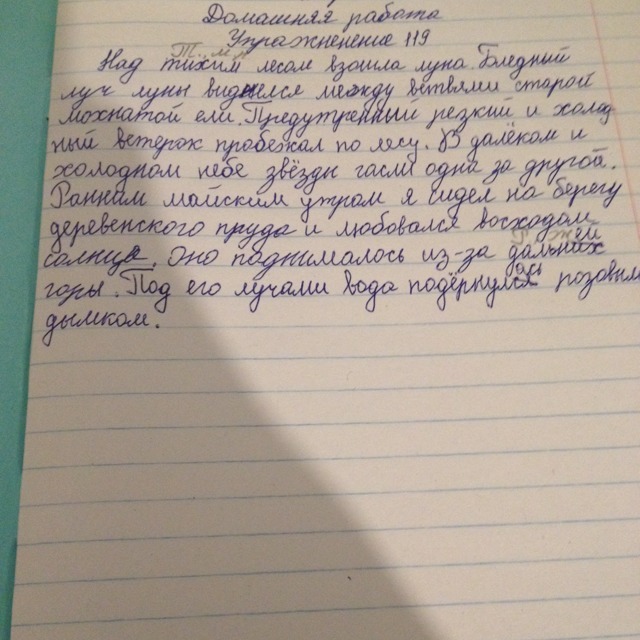 Домашняя работа
Упражненение 119
Т.п.
Над тихим лесом взошла луна. Бледный
луч луны виднелся между ветвями старой
мохнатой ели. Предутренный резкий и холод
ный ветерок пробежал по лесу. В далёком и
холодном небе звёзды гасли одна за другой.
Ранним майским утром я сидел на берегу
деревенского пруда и любовался восходом
солнца. Оно поднималось из-за дальних
горы. Под его лучами вода подёрнулась розовым
дымком.